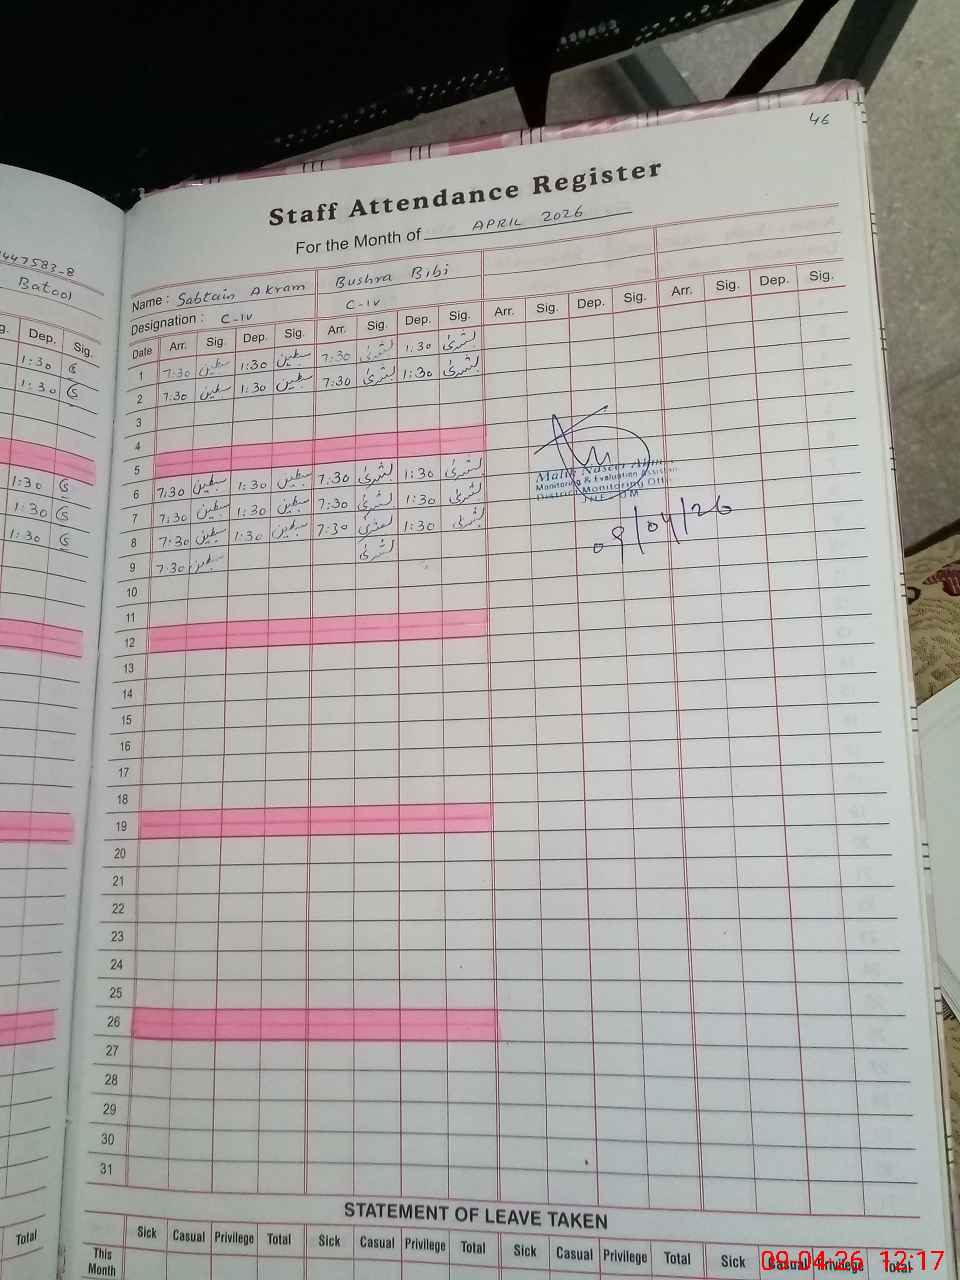 46
Staff Attendance Register
For the Month of APRIL 2026
1447583-8
Batool
Name : Sabtain Akram Bushra Bibi
Designation : C-IV C-IV
Dep. Sig.
Date Arr. Sig. Dep. Sig. Arr. Sig. Dep. Sig. Arr. Sig. Dep. Sig. Arr. Sig. Dep. Sig.
1:30
1 7:30 سبطین 1:30 سبطین 7:30 بشریٰ 1:30 بشریٰ
1:30
2 7:30 سبطین 1:30 سبطین 7:30 بشریٰ 1:30 بشریٰ
3
4
5
1:30
6 7:30 سبطین 1:30 سبطین 7:30 بشریٰ 1:30 بشریٰ
1:30
7 7:30 سبطین 1:30 سبطین 7:30 بشریٰ 1:30 بشریٰ
1:30
8 7:30 سبطین 1:30 سبطین 7:30 بشریٰ 1:30 بشریٰ
9 7:30 سبطین بشریٰ
Malik Naseer
Monitoring & Evaluation Assistant
District Monitoring
09/04/26
10
11
12
13
14
15
16
17
18
19
20
21
22
23
24
25
26
27
28
29
30
31
STATEMENT OF LEAVE TAKEN
Total
Sick Casual Privilege Total Sick Casual Privilege Total Sick Casual Privilege Total Sick Casual Privilege Total
This Month
09.04.26 12:17